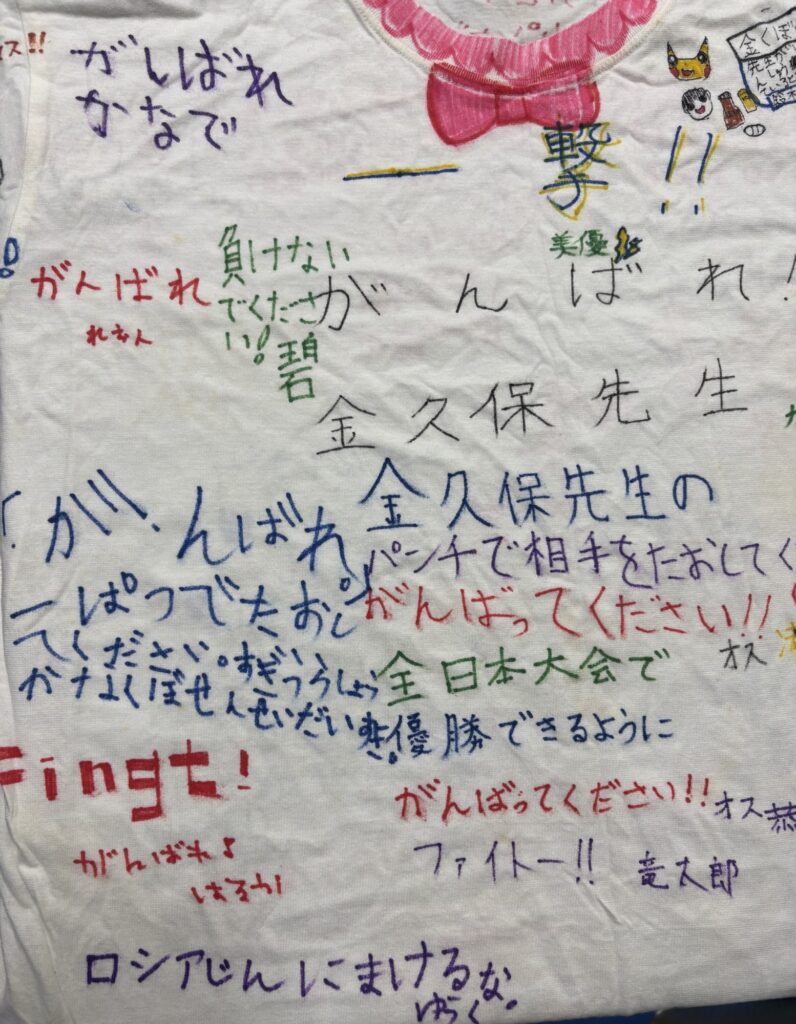 ス!!
がんばれ
かなで
金くぼ
先生が
一撃!!
美優
がんばれ
れおん
負けない
でくださ
い!
碧
がんばれ!
金久保先生
「が、んばれ
一ぱつでたおし
てください。
金久保先生の
パンチで相手をたおしてく
がんばってください!!
オス
全日本大会で
優勝できるように
がんばってください!!
オス 恭
Fingt!
がんばれ♪
はるか
ファイトー!!
竜太郎
ロシアじんにまけるな。
ゆらく